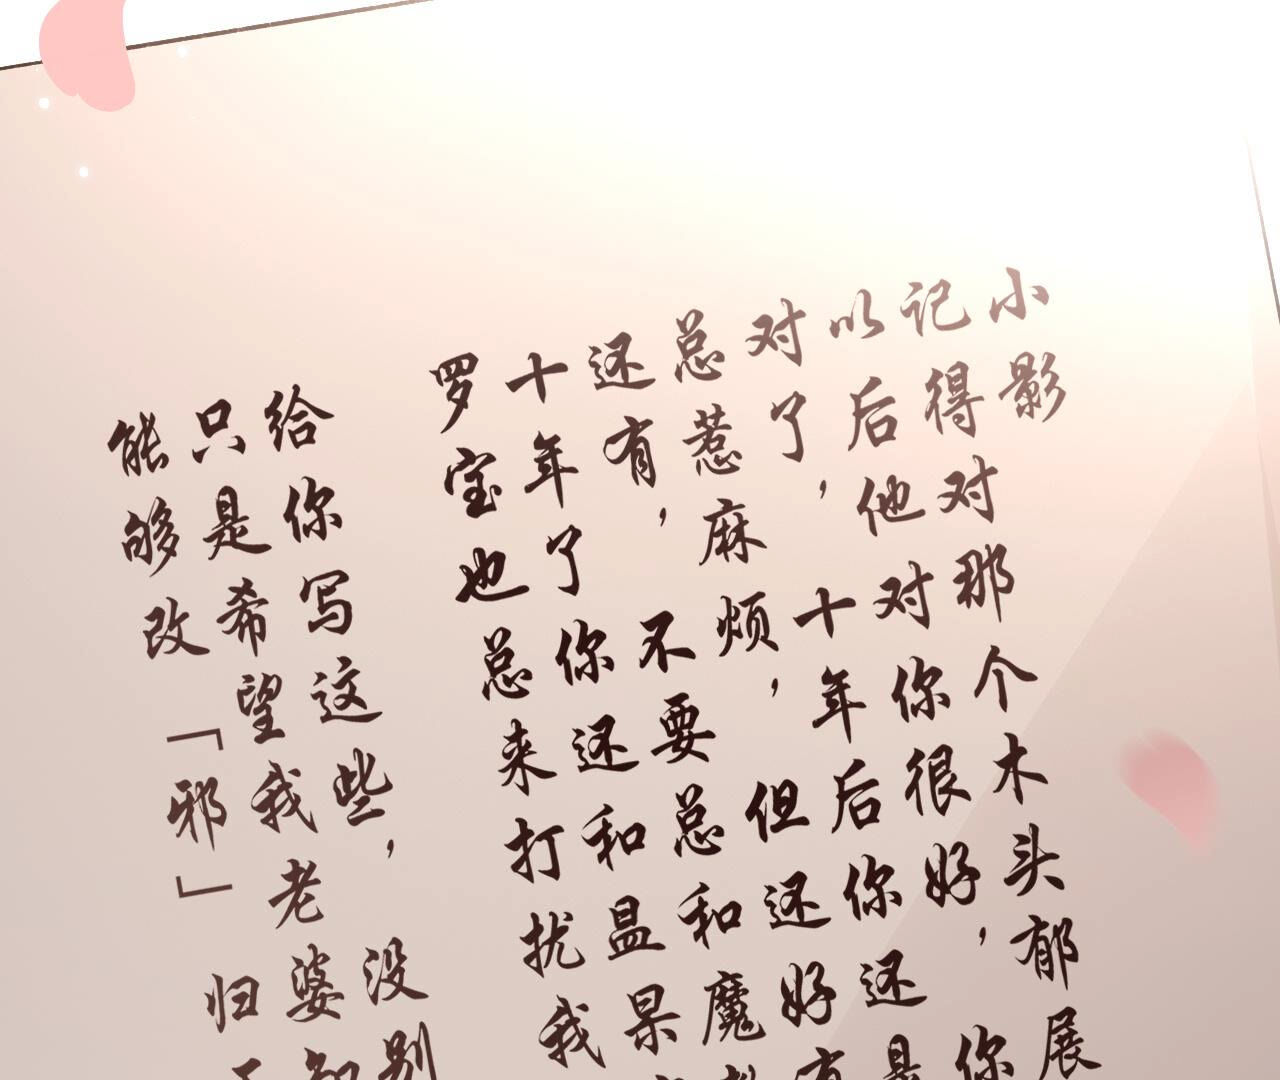 小影
记得对那个木头郁展
以后他对你很好，你
对了，十年后你还是
总惹麻烦，但还好有
还有，不要总和魔教
十年了你还和昷杲
罗宝也总来打扰我
给你写这些，没别
只是希望我老婆知
能够改「邪」归